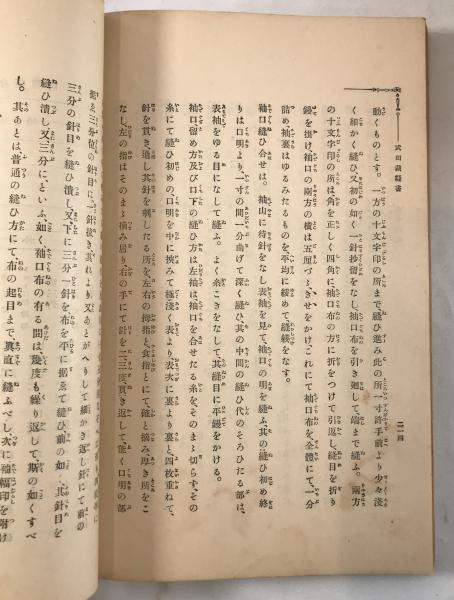 武田裁縫書
二一四
動くものとす。一方の十文字印の所まで縫ひ進み此の所一寸許手前より少々淺
く細かく縫ひ又初の如く一針抄招をなし袖口布を引き廻して、端まで縫ふ。兩方
の十文字印の所は角を正しく四角に、袖口布の方に折をつけて引返し縫目を折り
鏝を掛け袖口下兩方の橫は五厘づゝきせをかけ、これにて袖口布を全體にて、一分
詰め袖裏はゆるみたるものを、平均に緩めて縫綴をなす。
袖口縫ひ合せは。袖山に待針をなし表袖を見て、袖口の明を縫ふ、其の縫ひ初め終
りは口明より一寸の間一分曲げて深く縫ひ、其の中間の縫ひ代のそろひたる部は、
表袖をゆる目になして縫ふ。よく糸こきをなして其縫目に平鏝をかける。
袖口留め方及び口下の縫ひ方は左袖は袖口を合せたる糸を、そのまゝ切らず、その
糸にて縫ひ初めの、口明を中に挾みて極淺く表より、表次に裏より裏と四枚重ねて、
針を貫き通し其針を刺したる所を左右の拇指と、食指とにて、確と摘み厚き所をこ
なし、左の指はそのまゝ摘み居り、右の手にて針を二三度貫き返して、能く口明の部
三分の針目を縫ひ潰し又下に三分一針を布を平に据ゑて縫ひ前の如く針目を
縫ひ潰し又三分にといふ、如く袖口布の有る間は幾度も繰り返して、斯の如くすべ
し。其あとは普通の縫ひ方にて布の起目まで眞直に縫ふべし、次に袖幅印を附け